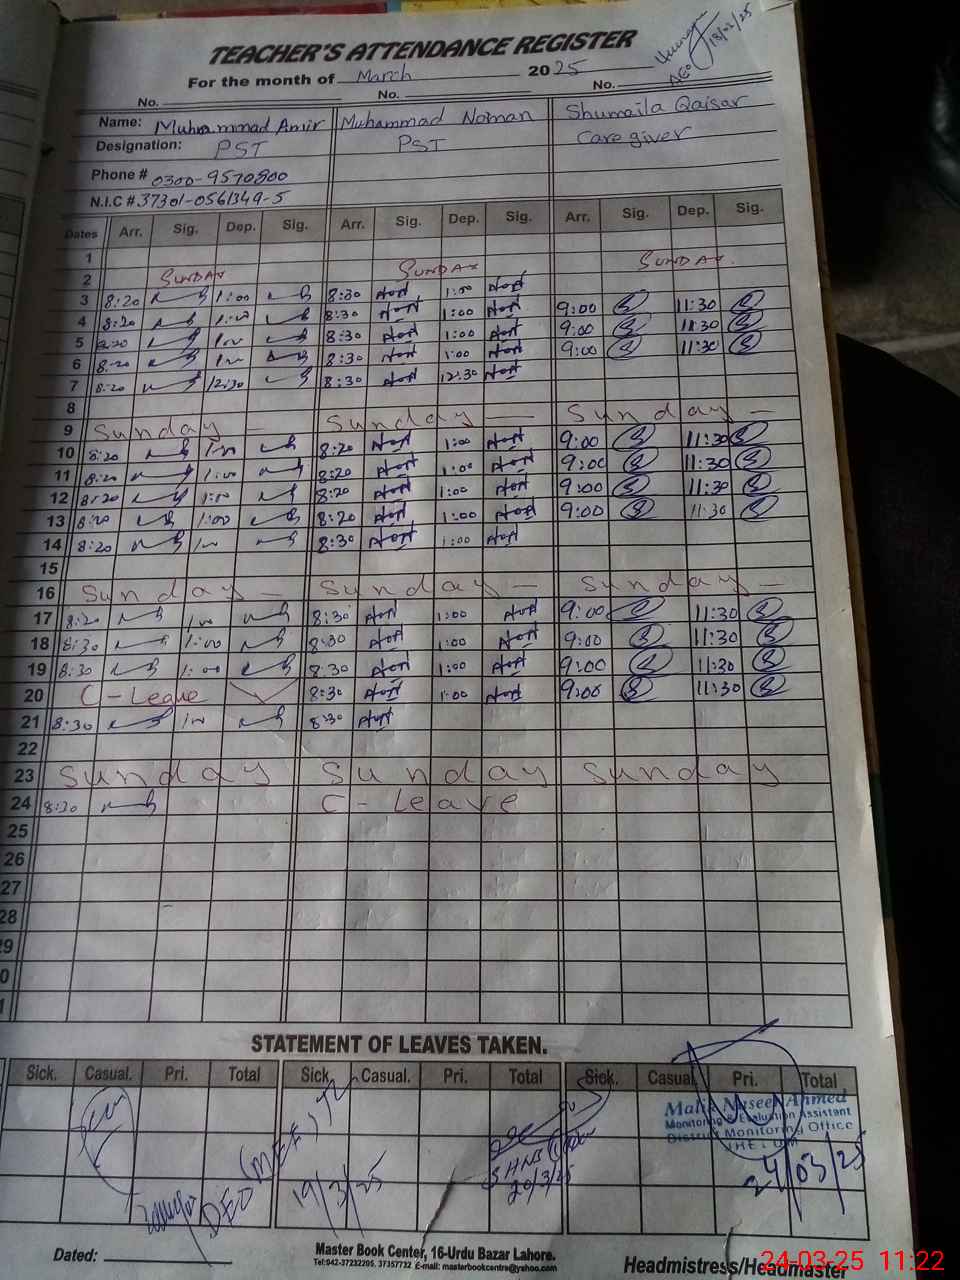 TEACHER'S ATTENDANCE REGISTER
For the month of March 2025
18/03/25
AEO
No. No. No.
Name: Muhammad Amir Muhammad Noman Shumaila Qaisar
Designation: PST PST Care giver
Phone # 0300-9570800
N.I.C # 37301-0561349-5
Dates Arr. Sig. Dep. Sig. Arr. Sig. Dep. Sig. Arr. Sig. Dep. Sig.
1
2 SUNDAY SUNDAY SUNDAY
3 8:20 1:00 8:30 1:00
4 8:20 1:00 8:30 1:00 9:00 11:30
5 8:20 1:00 8:30 1:00 9:00 11:30
6 8:20 1:00 8:30 1:00 9:00 11:30
7 8:20 12:30 8:30 12:30
8
9 Sunday Sunday Sunday
10 8:20 1:00 8:20 1:00 9:00 11:30
11 8:20 1:00 8:20 1:00 9:00 11:30
12 8:20 1:00 8:20 1:00 9:00 11:30
13 8:20 1:00 8:20 1:00 9:00 11:30
14 8:20 1:00 8:30 1:00
15
16 Sunday Sunday Sunday
17 8:20 1:00 8:30 1:00 9:00 11:30
18 8:30 1:00 8:30 1:00 9:00 11:30
19 8:30 1:00 8:30 1:00 9:00 11:30
20 C-Leave 8:30 1:00 9:00 11:30
21 8:30 1:00 8:30
22
23 Sunday Sunday Sunday
24 8:20 C-Leave
25
26
27
28
29
0
1
STATEMENT OF LEAVES TAKEN.
Sick. Casual. Pri. Total Sick. Casual. Pri. Total Sick. Casual. Pri. Total
Malik Naseer Ahmed
Monitoring & Evaluation Assistant
District Monitoring Office
JHELUM
DEO (MEE)
19/3/25
20/3/25
24/03/25
Dated:
Master Book Center, 16-Urdu Bazar Lahore.
Tel:042-37232205, 37357732 E-mail: masterbookcentre@yahoo.com
Headmistress/Headmaster
24-03-25 11:22